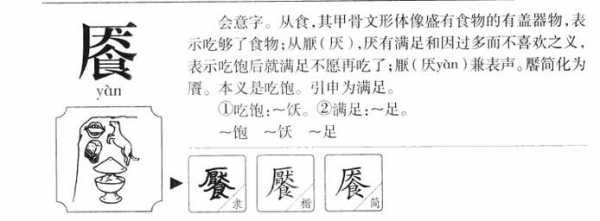 餍
yàn
会意字。从食,其甲骨文形体像盛有食物的有盖器物,表
示吃够了食物;从厭(厌),厌有满足和因过多而不喜欢之义,
表示吃饱后就满足不愿再吃了;厭(厌yàn)兼表声。饜简化为
餍。本义是吃饱。引申为满足。
①吃饱:~饫。②满足:~足。
~饱 ~饫 ~足
饜 隶
饜 楷
餍 简